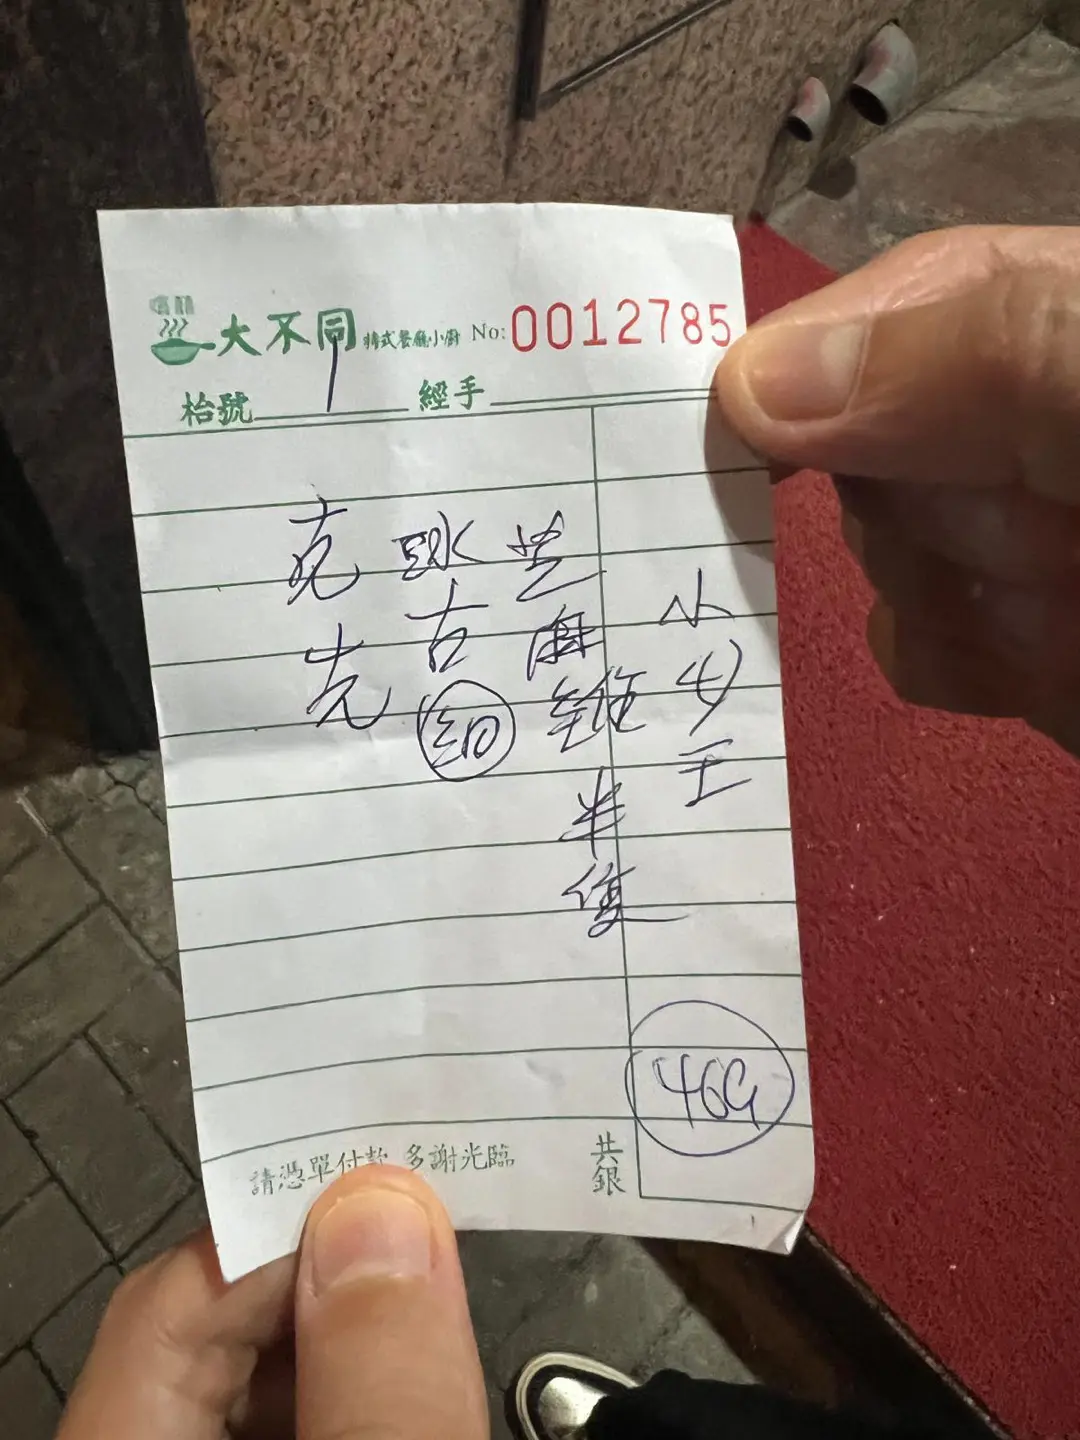 大不同 餐廳小廚 No: 0012785
枱號 1 經手
小炒王
芝麻雞半隻
古 細
469
共銀
請憑單付款 多謝光臨